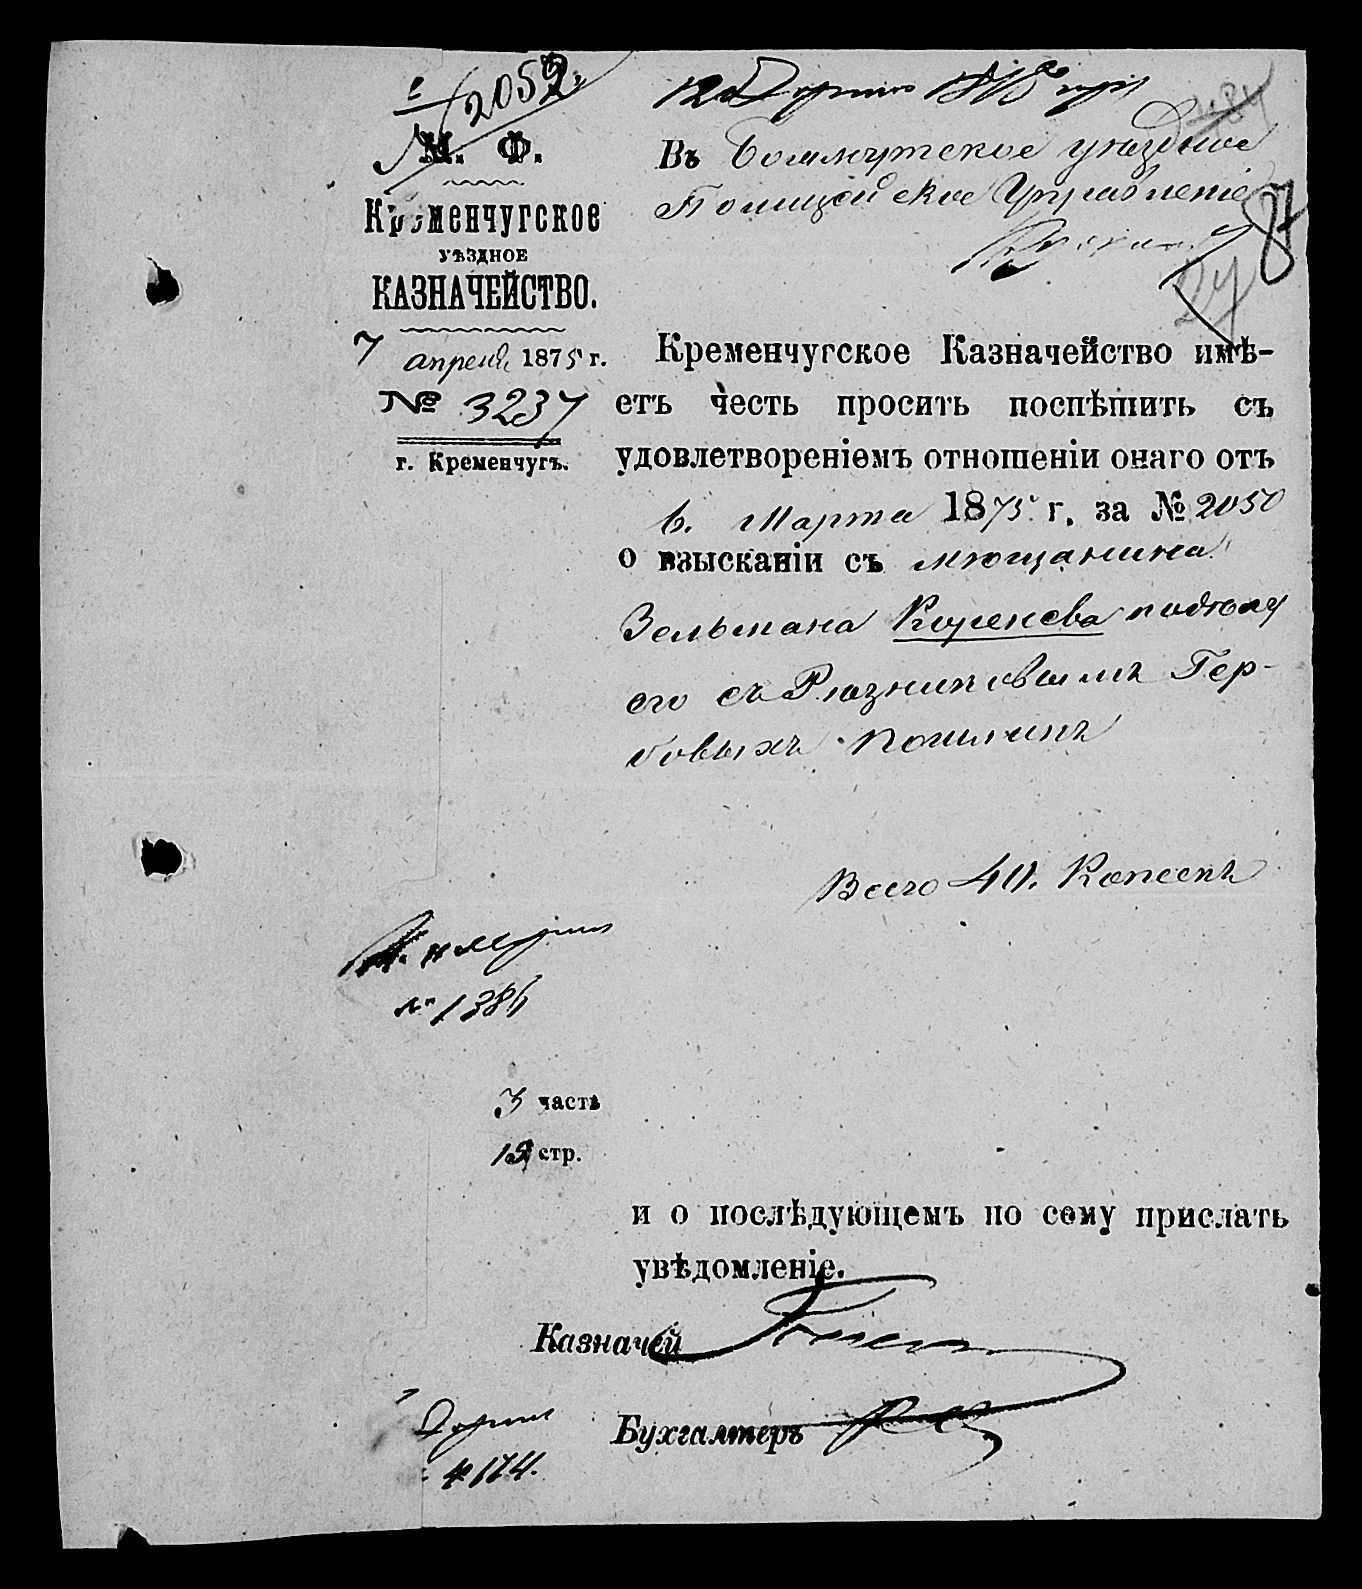 2052
М. Ф.
Кременчугское
УѢЗДНОЕ
КАЗНАЧЕЙСТВО.
7 апреля 1875 г.
№ 3237
г. Кременчугъ.
87
Въ Бахмутское уѣздное
Полицейское Управленіе
Кременчугское Казначейство имѣ-
етъ честь просить поспѣшить съ
удовлетвореніемъ отношеніи онаго отъ
6. Марта 1875 г. за № 2050
о взысканіи съ мѣщанина
Зельмана Коренева по дѣлу
его съ Рѣзниковымъ Гер-
бовыхъ пошлинъ
Всего 40. Копѣекъ
№ 1386
3 часть
стр.
и о послѣдующемъ по сему прислать
увѣдомленіе.
Казначей
Бухгалтеръ
№ 174.